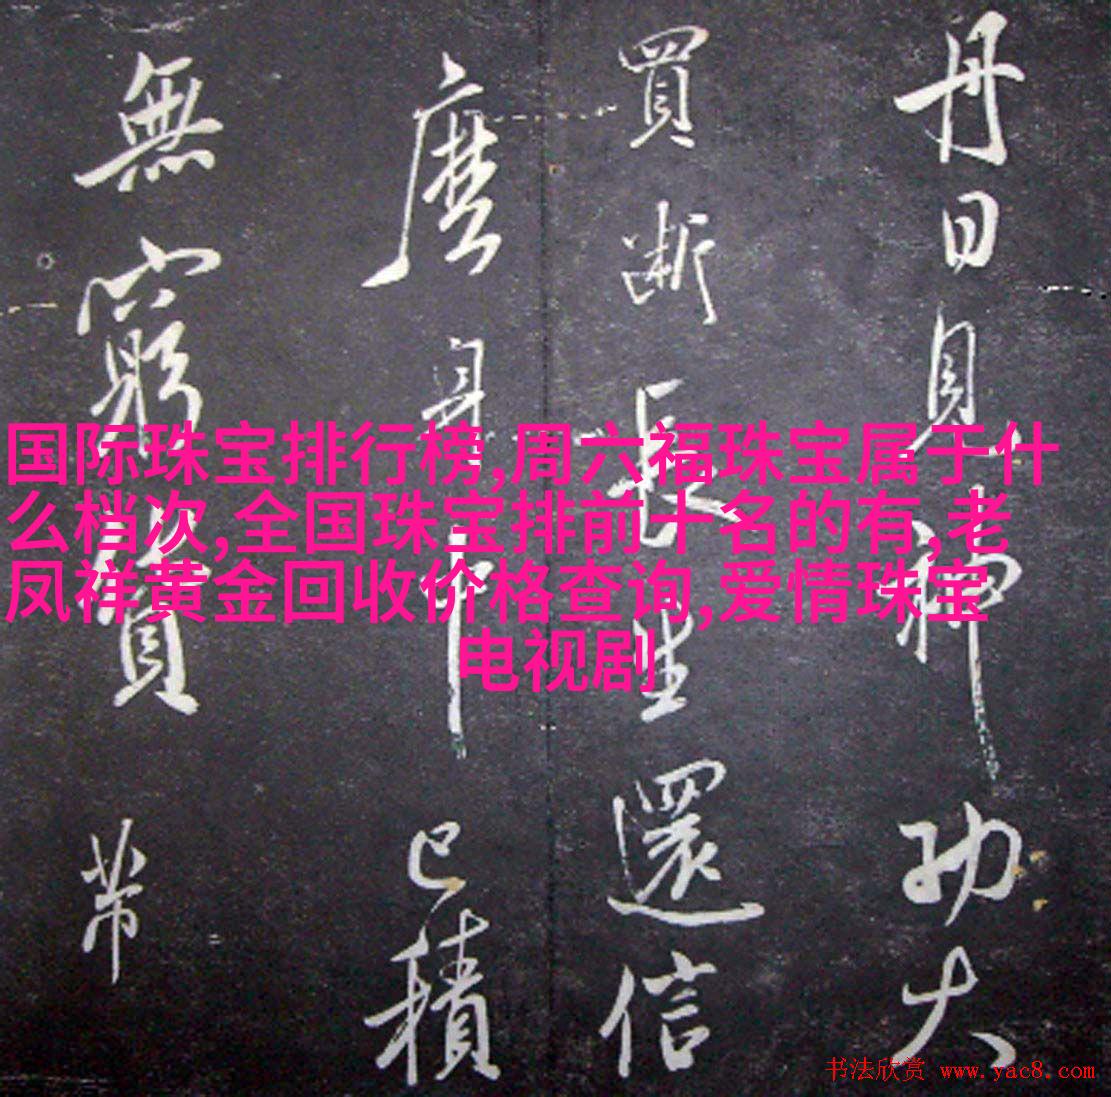 丹日月神功大
買斷長生還信
身已積
無窮帶
国际珠宝排行榜,周六福珠宝属于什
么档次,全国珠宝排前十名的有,老
凤祥黄金回收价格查询,爱情珠宝
电视剧
书法欣赏 www.yac8.com